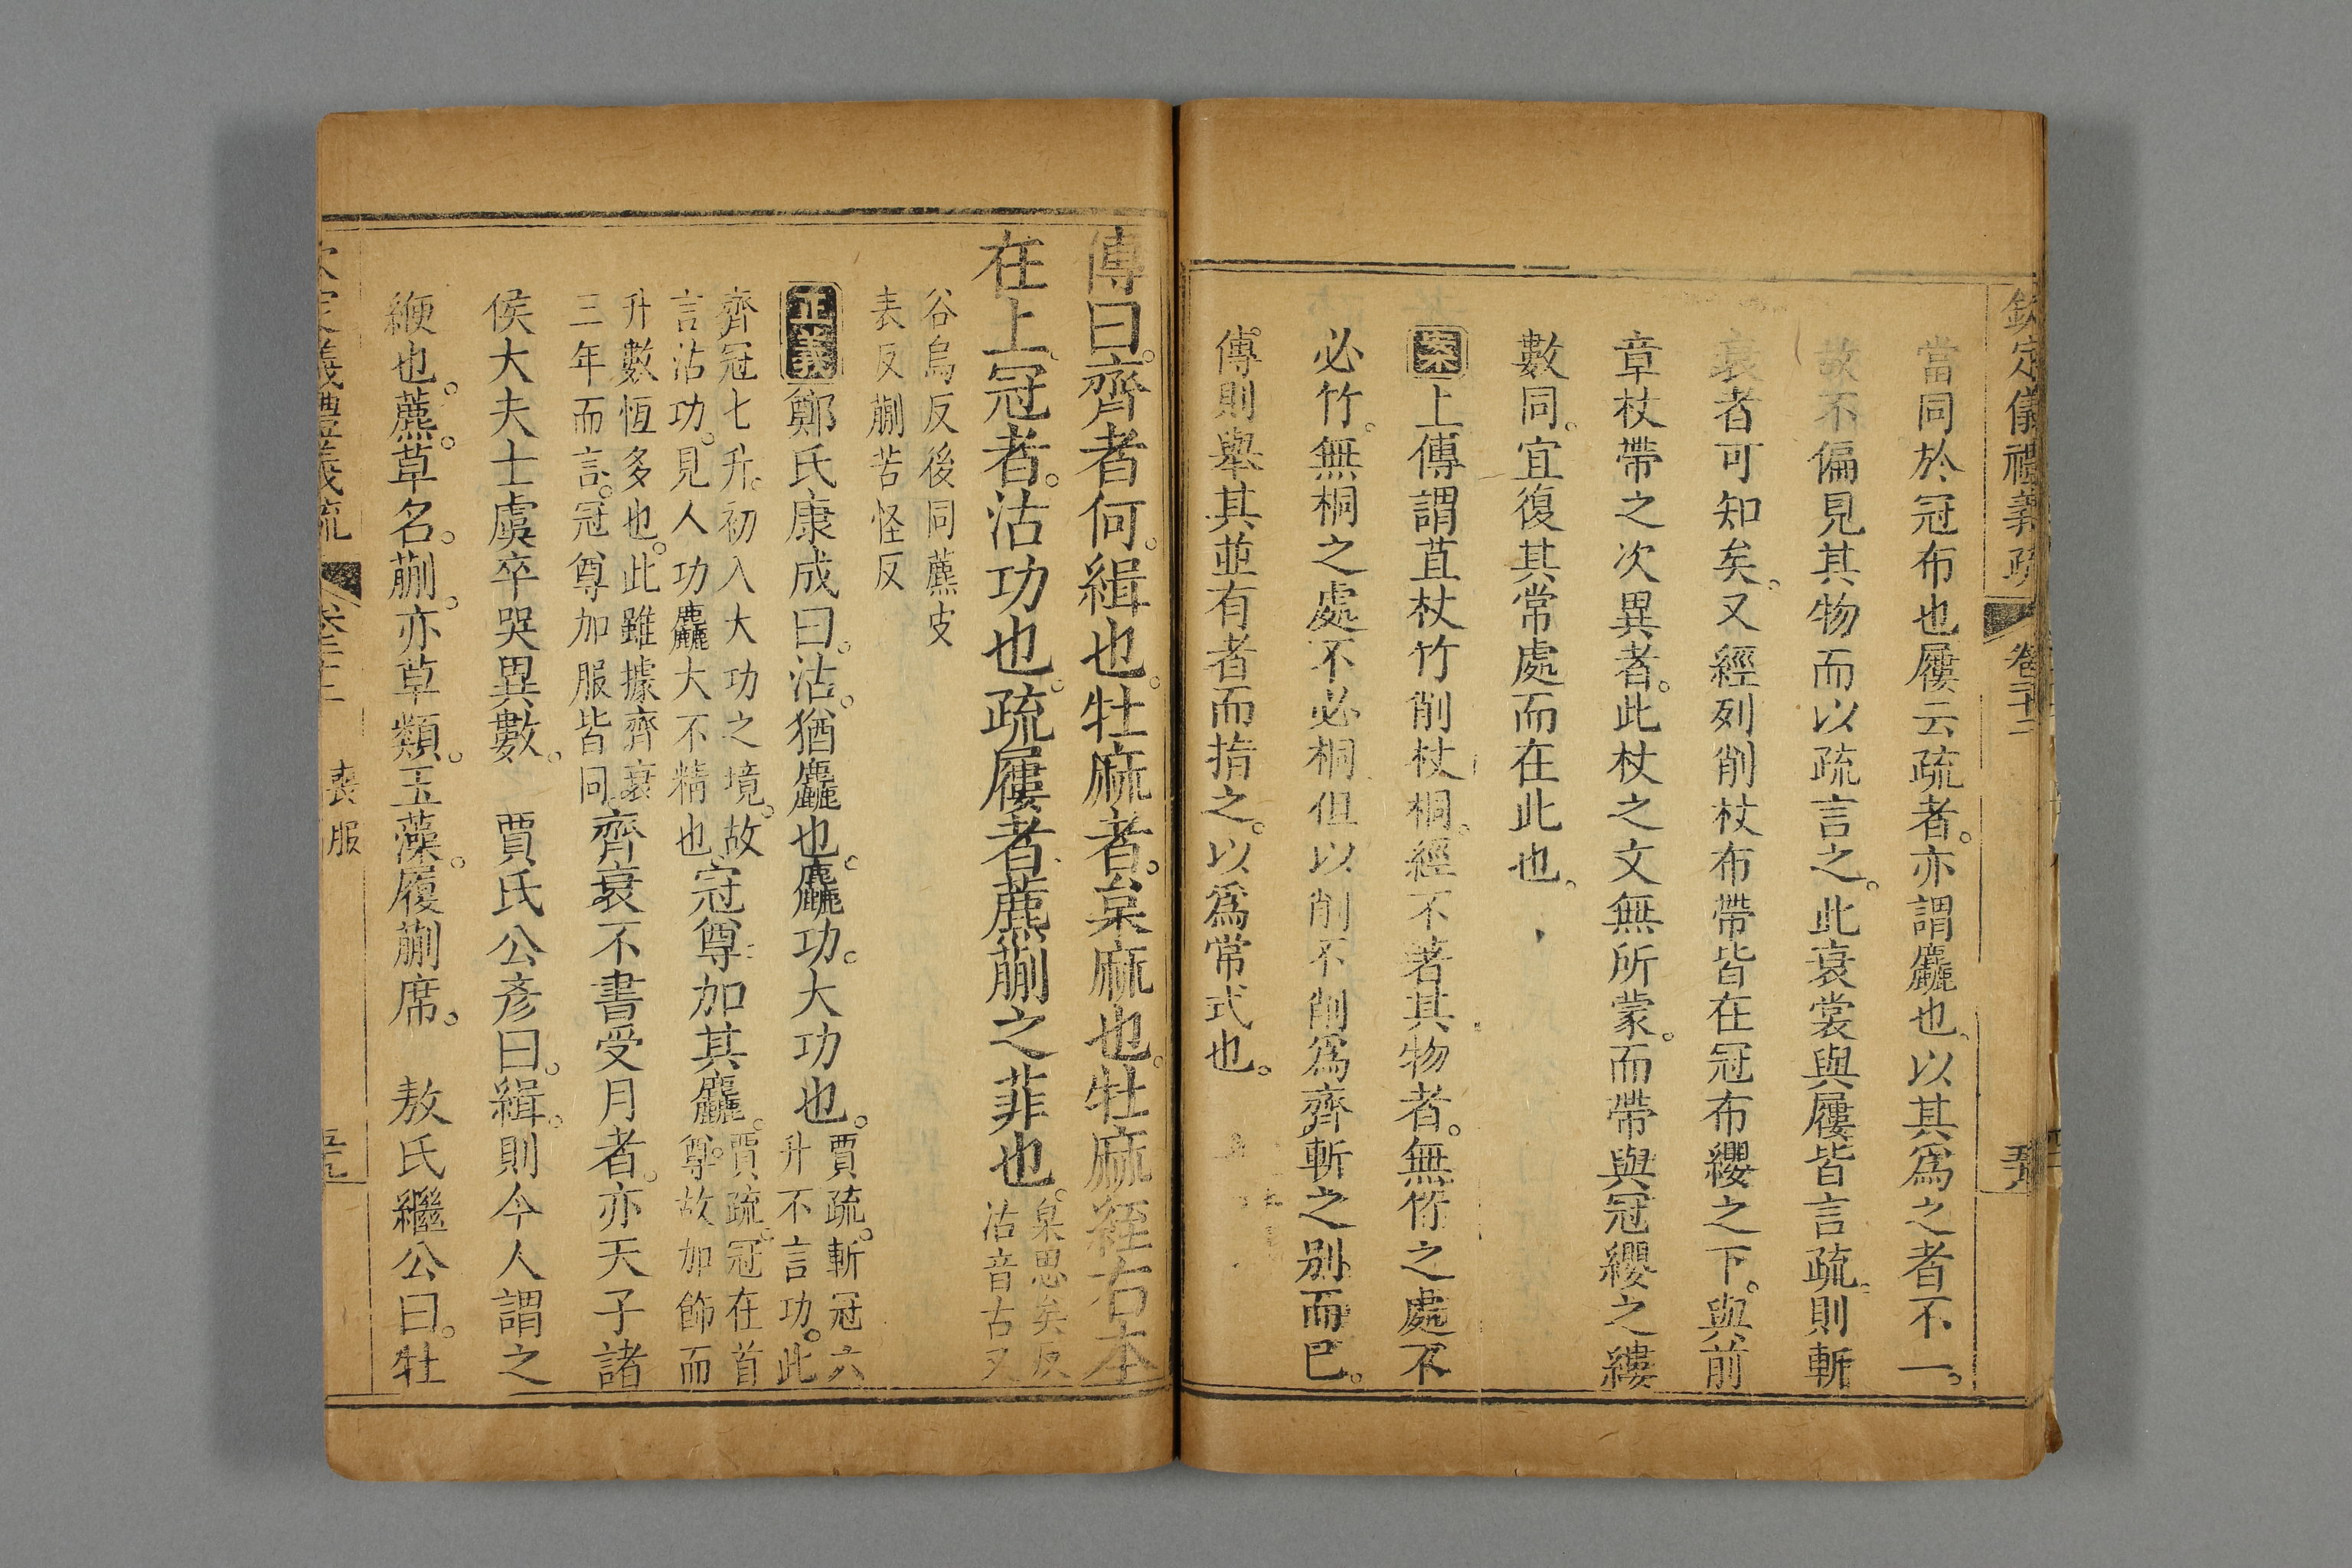 欽定儀禮義疏 卷二十二
當同於冠布也屨云疏者亦謂麤也以其爲之者不一
故不偏見其物而以疏言之此衰裳與屨皆言疏則斬
衰者可知矣又經列削杖布帶皆在冠布纓之下與前
章杖帶之次異者此杖之文無所蒙而帶與冠纓之縷
數同宜復其常處而在此也
案上傳謂苴杖竹削杖桐經不著其物者無竹之處不
必竹無桐之處不必桐但以削不削爲齊斬之別而已
傳則舉其並有者而指之以爲常式也
傳曰齊者何緝也牡麻者枲麻也牡麻絰右本
在上冠者沽功也疏屨者藨蒯之菲也
枲思矣反
沽音古又
谷烏反後同藨皮
表反蒯苦怪反
正義鄭氏康成曰沽猶麤也麤功大功也
賈疏斬冠六
升不言功此
齊冠七升初入大功之境故
言沽功見人功麤大不精也
冠尊加其麤
賈疏冠在首
尊故加飾而
升數恆多也此雖據齊衰
三年而言冠尊加服皆同
齊衰不書受月者亦天子諸
侯大夫士虞卒哭異數 賈氏公彥曰緝則今人謂之
緶也藨草名蒯亦草類玉藻履蒯席 敖氏繼公曰牡
欽定義禮義疏 喪服